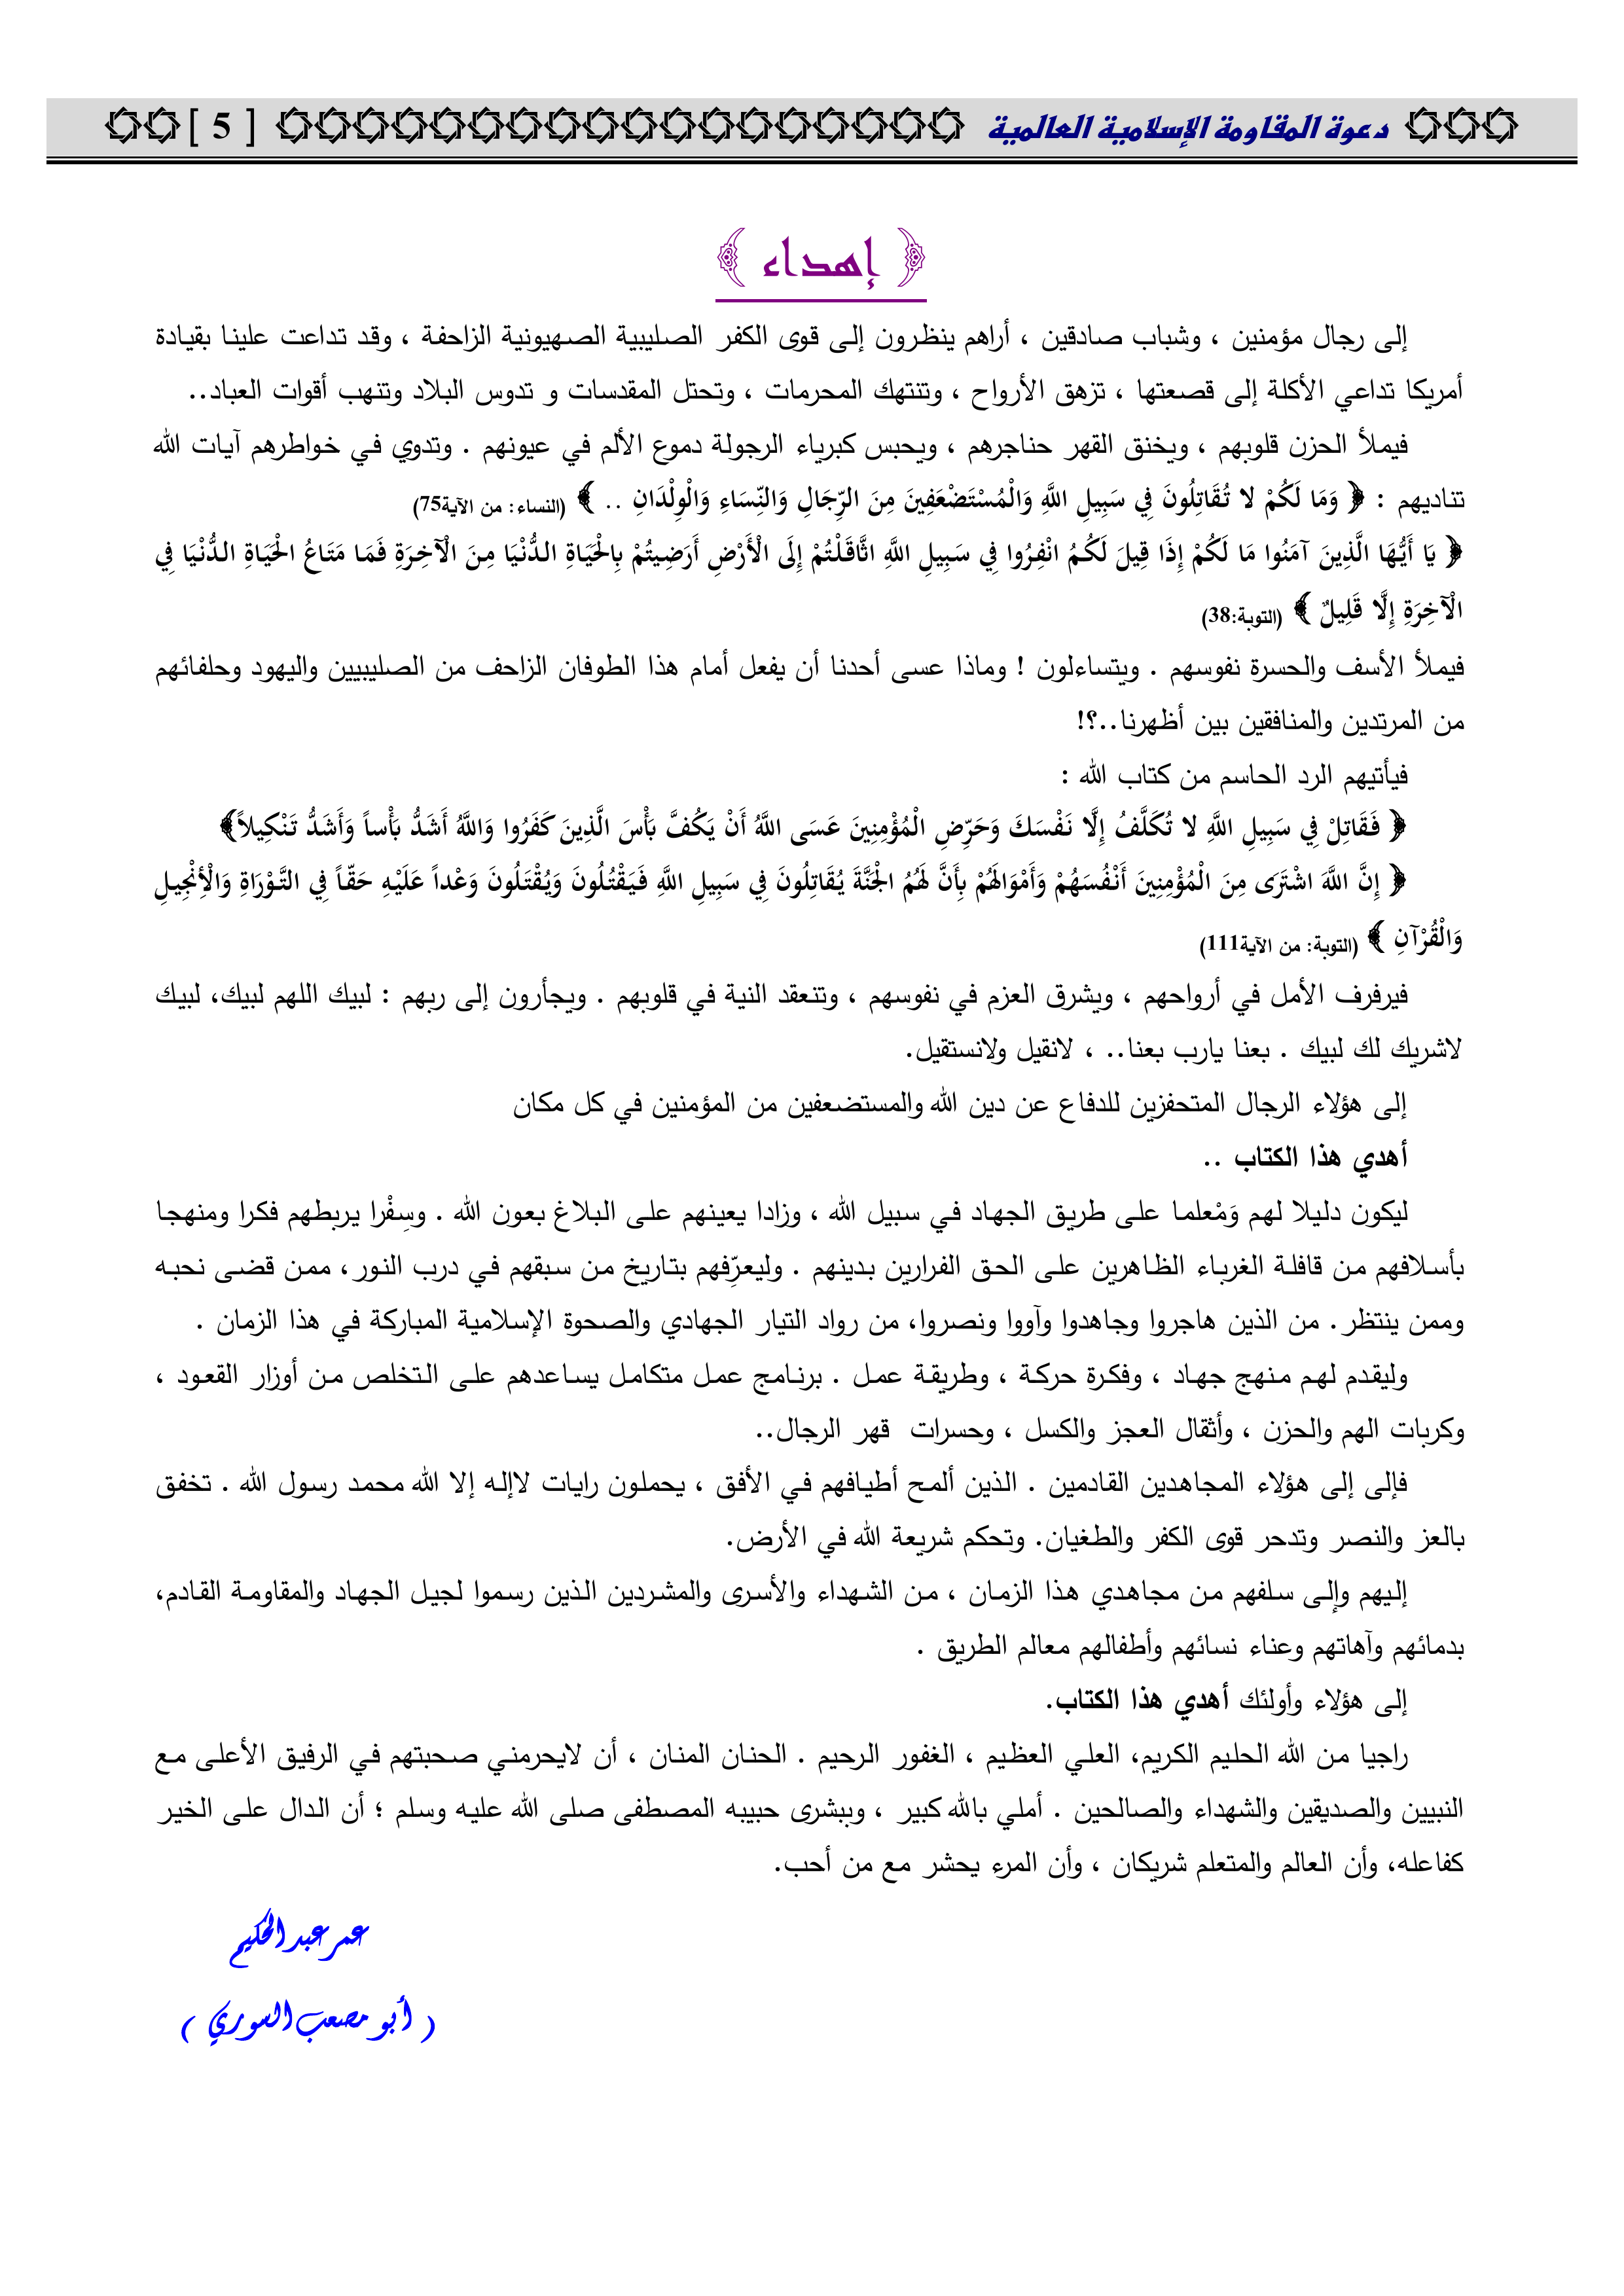 دعوة المقاومة الإسلامية العالمية [ 5 ]
﴿ إهداء ﴾
إلى رجال مؤمنين ، وشباب صادقين ، أراهم ينظرون إلى قوى الكفر الصليبية الصهيونية الزاحفة ، وقد تداعت علينا بقيادة
أمريكا تداعي الأكلة إلى قصعتها ، تزهق الأرواح ، وتنتهك المحرمات ، وتحتل المقدسات و تدوس البلاد وتنهب أقوات العباد..
فيملأ الحزن قلوبهم ، ويخنق القهر حناجرهم ، ويحبس كبرياء الرجولة دموع الألم في عيونهم . وتدوي في خواطرهم آيات الله
تناديهم : ﴿ وَمَا لَكُمْ لا تُقَاتِلُونَ فِي سَبِيلِ اللَّهِ وَالْمُسْتَضْعَفِينَ مِنَ الرِّجَالِ وَالنِّسَاءِ وَالْوِلْدَانِ .. ﴾ (النساء: من الآية75)
﴿ يَا أَيُّهَا الَّذِينَ آمَنُوا مَا لَكُمْ إِذَا قِيلَ لَكُمُ انْفِرُوا فِي سَبِيلِ اللَّهِ اثَّاقَلْتُمْ إِلَى الْأَرْضِ أَرَضِيتُمْ بِالْحَيَاةِ الدُّنْيَا مِنَ الْآخِرَةِ فَمَا مَتَاعُ الْحَيَاةِ الدُّنْيَا فِي
الْآخِرَةِ إِلَّا قَلِيلٌ ﴾ (التوبة:38)
فيملأ الأسف والحسرة نفوسهم . ويتساءلون ! وماذا عسى أحدنا أن يفعل أمام هذا الطوفان الزاحف من الصليبيين واليهود وحلفائهم
من المرتدين والمنافقين بين أظهرنا..؟!
فيأتيهم الرد الحاسم من كتاب الله :
﴿ فَقَاتِلْ فِي سَبِيلِ اللَّهِ لا تُكَلَّفُ إِلَّا نَفْسَكَ وَحَرِّضِ الْمُؤْمِنِينَ عَسَى اللَّهُ أَنْ يَكُفَّ بَأْسَ الَّذِينَ كَفَرُوا وَاللَّهُ أَشَدُّ بَأْساً وَأَشَدُّ تَنْكِيلاً﴾
﴿ إِنَّ اللَّهَ اشْتَرَى مِنَ الْمُؤْمِنِينَ أَنْفُسَهُمْ وَأَمْوَالَهُمْ بِأَنَّ لَهُمُ الْجَنَّةَ يُقَاتِلُونَ فِي سَبِيلِ اللَّهِ فَيَقْتُلُونَ وَيُقْتَلُونَ وَعْداً عَلَيْهِ حَقّاً فِي التَّوْرَاةِ وَالْأِنْجِيلِ
وَالْقُرْآنِ ﴾ (التوبة: من الآية111)
فيرفرف الأمل في أرواحهم ، ويشرق العزم في نفوسهم ، وتنعقد النية في قلوبهم . ويجأرون إلى ربهم : لبيك اللهم لبيك، لبيك
لاشريك لك لبيك . بعنا يارب بعنا.. ، لانقيل ولانستقيل.
إلى هؤلاء الرجال المتحفزين للدفاع عن دين الله والمستضعفين من المؤمنين في كل مكان
أهدي هذا الكتاب ..
ليكون دليلا لهم وَمْعلما على طريق الجهاد في سبيل الله ، وزادا يعينهم على البلاغ بعون الله . وسِفْرا يربطهم فكرا ومنهجا
بأسلافهم من قافلة الغرباء الظاهرين على الحق الفرارين بدينهم . وليعرِّفهم بتاريخ من سبقهم في درب النور، ممن قضى نحبه
وممن ينتظر. من الذين هاجروا وجاهدوا وآووا ونصروا، من رواد التيار الجهادي والصحوة الإسلامية المباركة في هذا الزمان .
وليقدم لهم منهج جهاد ، وفكرة حركة ، وطريقة عمل . برنامج عمل متكامل يساعدهم على التخلص من أوزار القعود ،
وكربات الهم والحزن ، وأثقال العجز والكسل ، وحسرات قهر الرجال..
فإلى إلى هؤلاء المجاهدين القادمين . الذين ألمح أطيافهم في الأفق ، يحملون رايات لاإله إلا الله محمد رسول الله . تخفق
بالعز والنصر وتدحر قوى الكفر والطغيان. وتحكم شريعة الله في الأرض.
إليهم وإلى سلفهم من مجاهدي هذا الزمان ، من الشهداء والأسرى والمشردين الذين رسموا لجيل الجهاد والمقاومة القادم،
بدمائهم وآهاتهم وعناء نسائهم وأطفالهم معالم الطريق .
إلى هؤلاء وأولئك أهدي هذا الكتاب.
راجيا من الله الحليم الكريم، العلي العظيم ، الغفور الرحيم . الحنان المنان ، أن لايحرمني صحبتهم في الرفيق الأعلى مع
النبيين والصديقين والشهداء والصالحين . أملي بالله كبير ، وببشرى حبيبه المصطفى صلى الله عليه وسلم ؛ أن الدال على الخير
كفاعله، وأن العالم والمتعلم شريكان ، وأن المرء يحشر مع من أحب.
عمر عبد الحكيم
( أبو مصعب السوري )